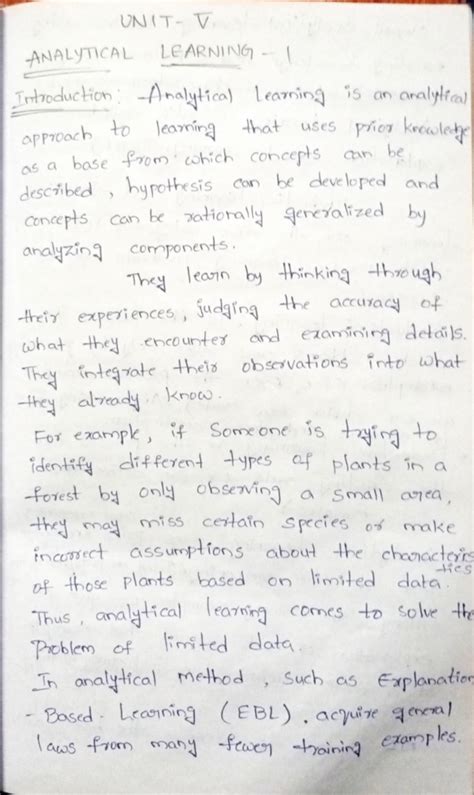 UNIT - V
ANALYTICAL LEARNING - 1
Introduction: - Analytical Learning is an analytical
approach to learning that uses prior knowledge
as a base from which concepts can be
described, hypothesis can be developed and
concepts can be rationally generalized by
analyzing components.
They learn by thinking through
their experiences, judging the accuracy of
what they encounter and examining details.
They integrate their observations into what
they already know.
For example, if someone is trying to
identify different types of plants in a
forest by only observing a small area,
they may miss certain species or make
incorrect assumptions about the characteris
-tics
of those plants based on limited data.
Thus, analytical learning comes to solve the
Problem of limited data.
In analytical method, such as Explanation
- Based - Learning (EBL), acquire general
laws from many fewer training examples.